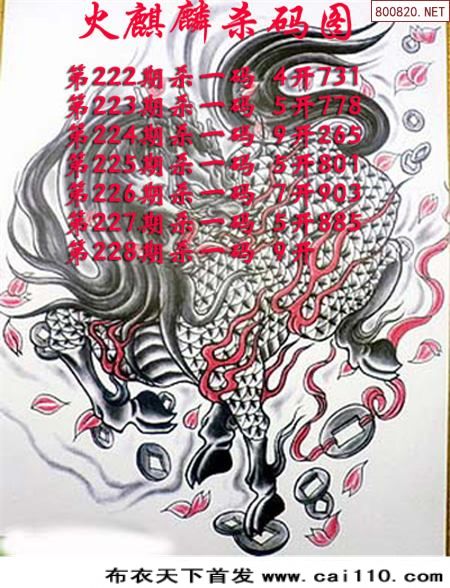 火麒麟杀码图
800820.NET
第222期杀一码 4开731
第223期杀一码 5开778
第224期杀一码 9开265
第225期杀一码 5开801
第226期杀一码 7开903
第227期杀一码 5开885
第228期杀一码 9开
布衣天下首发 www.cai110.com